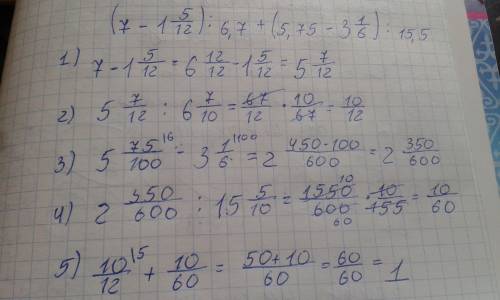 (7 - 1 5/12) : 6,7 + (5,75 - 3 1/6) : 15,5
1) 7 - 1 5/12 = 6 12/12 - 1 5/12 = 5 7/12
2) 5 7/12 : 6 7/10 = 67/12 · 10/67 = 10/12
3) 5 75/100 |6 - 3 1/6 |100 = 2 450-100/600 = 2 350/600
4) 2 350/600 : 15 5/10 = 1550/600 · 10/155 = 10/60
5) 10/12 |5 + 10/60 = 50+10/60 = 60/60 = 1